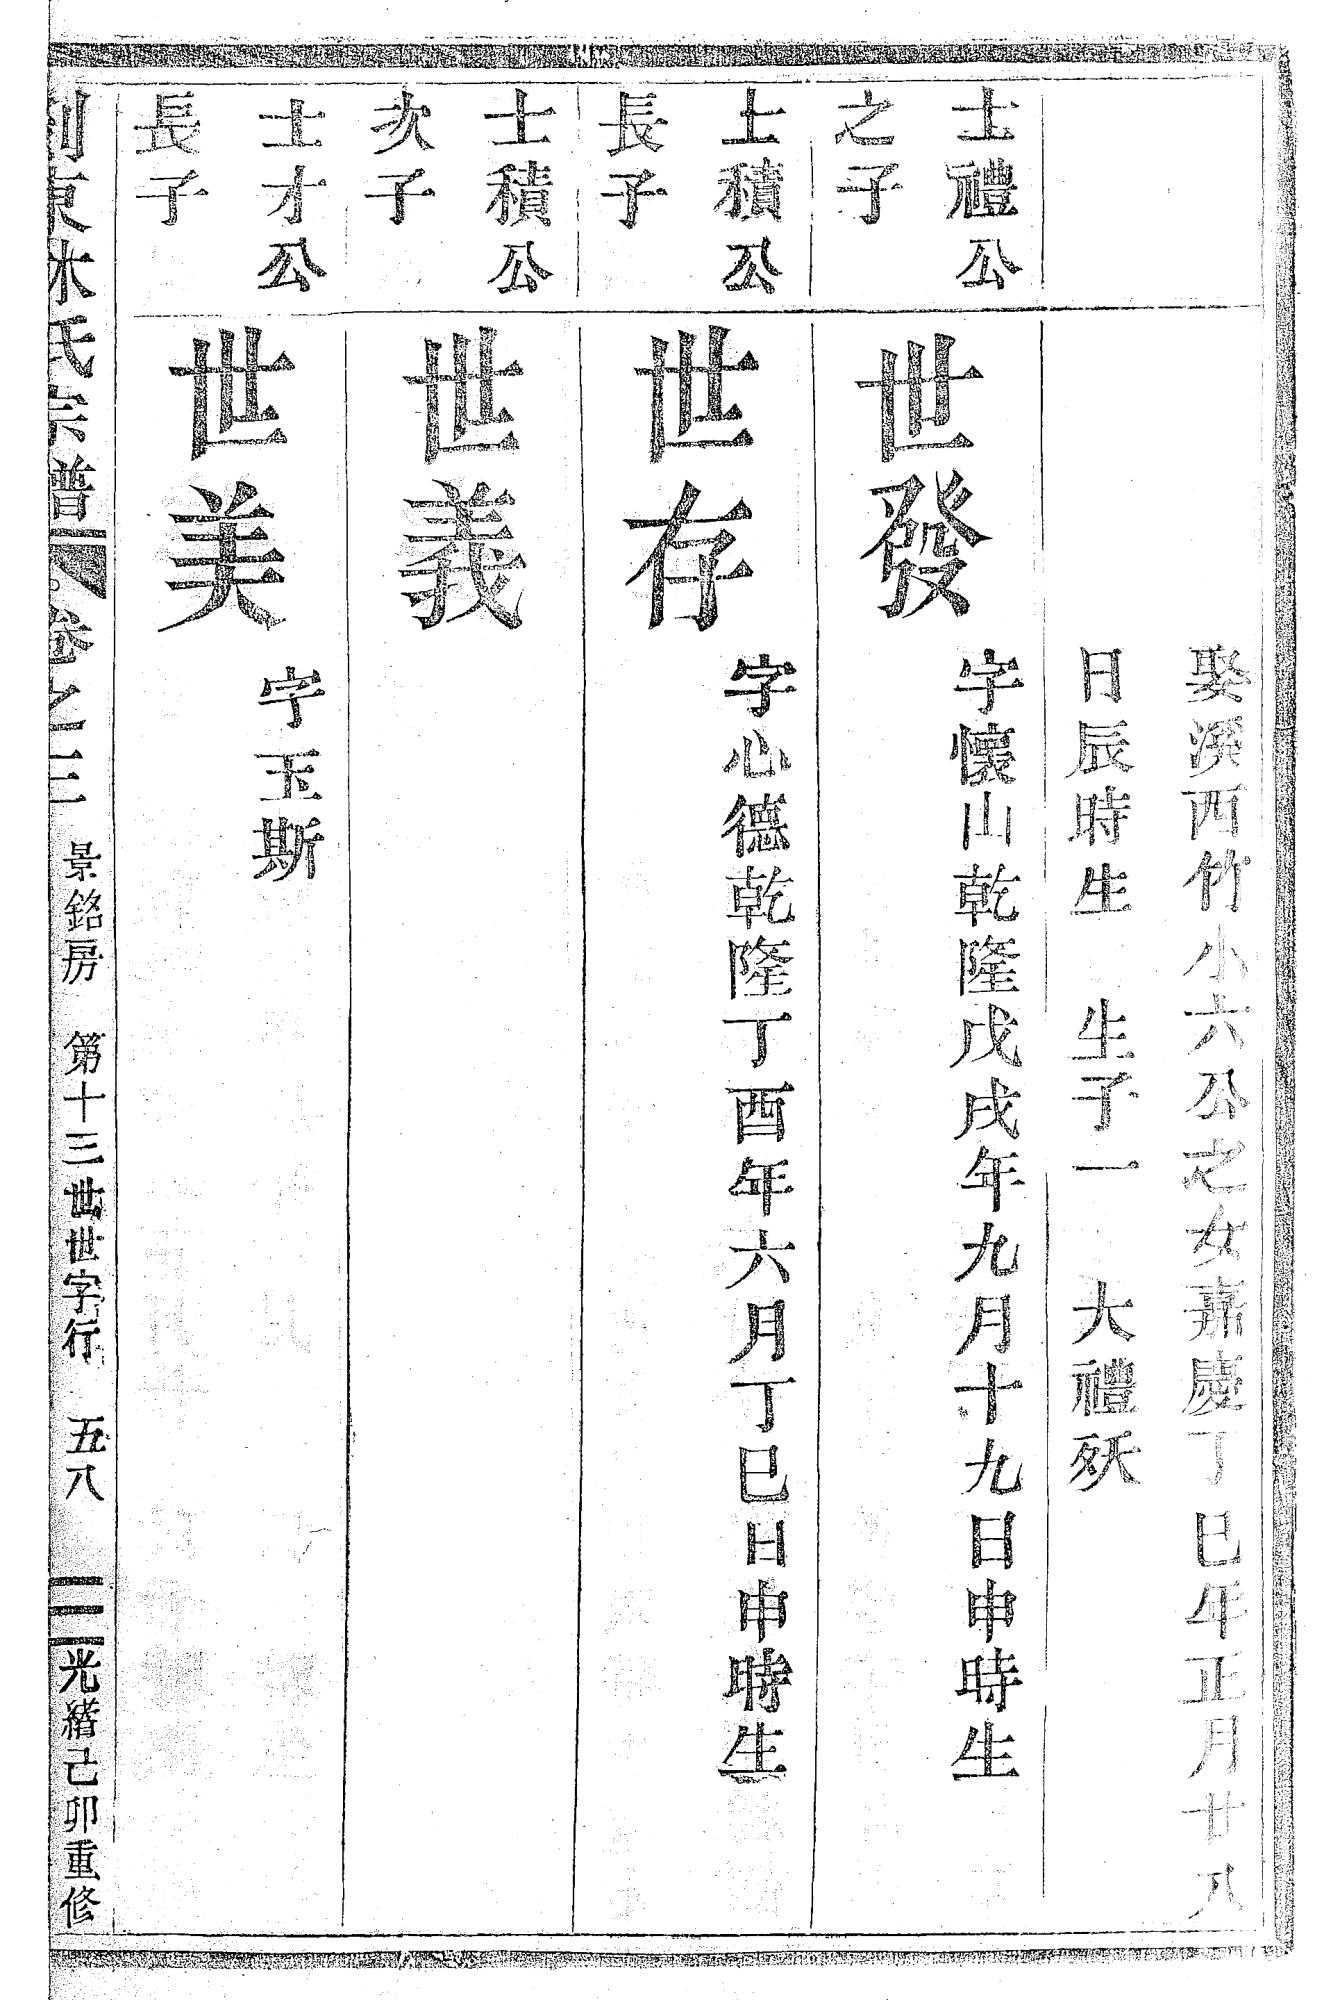 娶潩西竹小六公之女嘉慶丁巳年正月廿八
日辰時生　生子一　大禮殀
士禮公
之子
世發
字懷山乾隆戊戌年九月十九日申時生
士積公
長子
世存
字心德乾隆丁酉年六月丁巳日申時生
士積公
次子
世義
士才公
長子
世美
字玉斯
剡東水氏宗譜　卷之三　景銘房　第十三世世字行　五八　光緒己卯重修